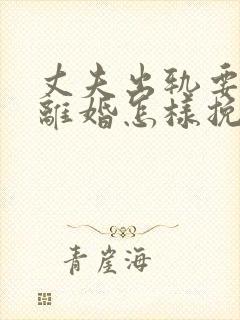 丈夫出轨要
離婚怎樣挽
青崖海